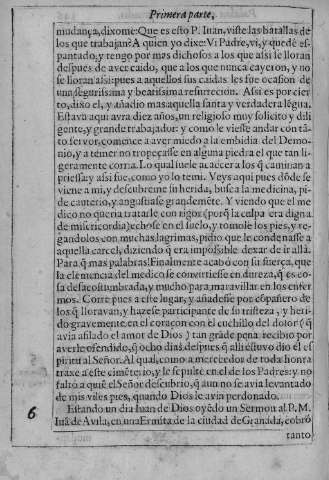 Primera parte,
mudança, dixome: Que es esto P. Iuan, viste las batallas de
los que trabajan? A quien yo dixe: Vi Padre, vi, y quedè es-
pantado, y tengo por mas dichosos a los que assi le lloran
despues de aver caido, que a los que nunca cayeron, y no
se lloran assi: pues a aquellos sus caidas les fue ocasion de
una segurissima y beatissima resurreccion. Assi es por cier-
to, dixo el, y añadio mas aquella santa y verdadera lēgua.
Estava aqui avra diez años, un religioso muy solicito y dili
gente, y grande trabajador: y como le viesse andar con tā-
to fervor, començe a aver miedo a la embidia del Demo-
nio, y a temer no tropeçasse en alguna piedra el que tan li-
geramente corria. Lo qual suele acaecer a los q̄ caminan a
priessa: y assi fue, como yo lo temi. Veys aqui pues dōde se
viene a mi, y descubreme su herida, busca la medicina, pi-
de cauterio, y angustiase grandemēte. Y viendo que el me
dico no queria tratarle con rigor (porq̄ la culpa era digna
de misericordia) echose en el suelo, y tomole los pies, y re-
gandolos con muchas lagrimas, pidio que le condenasse a
aquella carcel, diziendo q̄ era impossible dexar de ir allà.
Para q̄ mas palabras? Finalmente acabò con su fuerça, que
la clemencia del medico se convirtiesse en dureza, q̄ es co-
sa desacostumbrada, y mucho para maravillar en los enfer
mos. Corre pues a este lugar, y añadesse por cōpañero de
los q̄ lloravan, y hazese participante de su tristeza, y heri-
do gravemente en el coraçon con el cuchillo del dolor (q̄
avia afilado el amor de Dios) tan grāde pena recibio por
averle ofendido, q̄ ocho dias despues q̄ alli estuvo dio el es
piritu al Señor. Al qual, como a merecedor de toda honra
traxe a este cimēterio, y le sepulte en el de los Padres: y no
faltò a quiē el Señor descubrio, q̄ aun no se avia levantado
de mis viles pies, quando Dios le avia perdonado.
6 Estando un dia Iuan de Dios oyēdo un Sermon al P. M.
Iuā de Avila, en una Ermita de la ciudad de Granada, cobrò
tanto